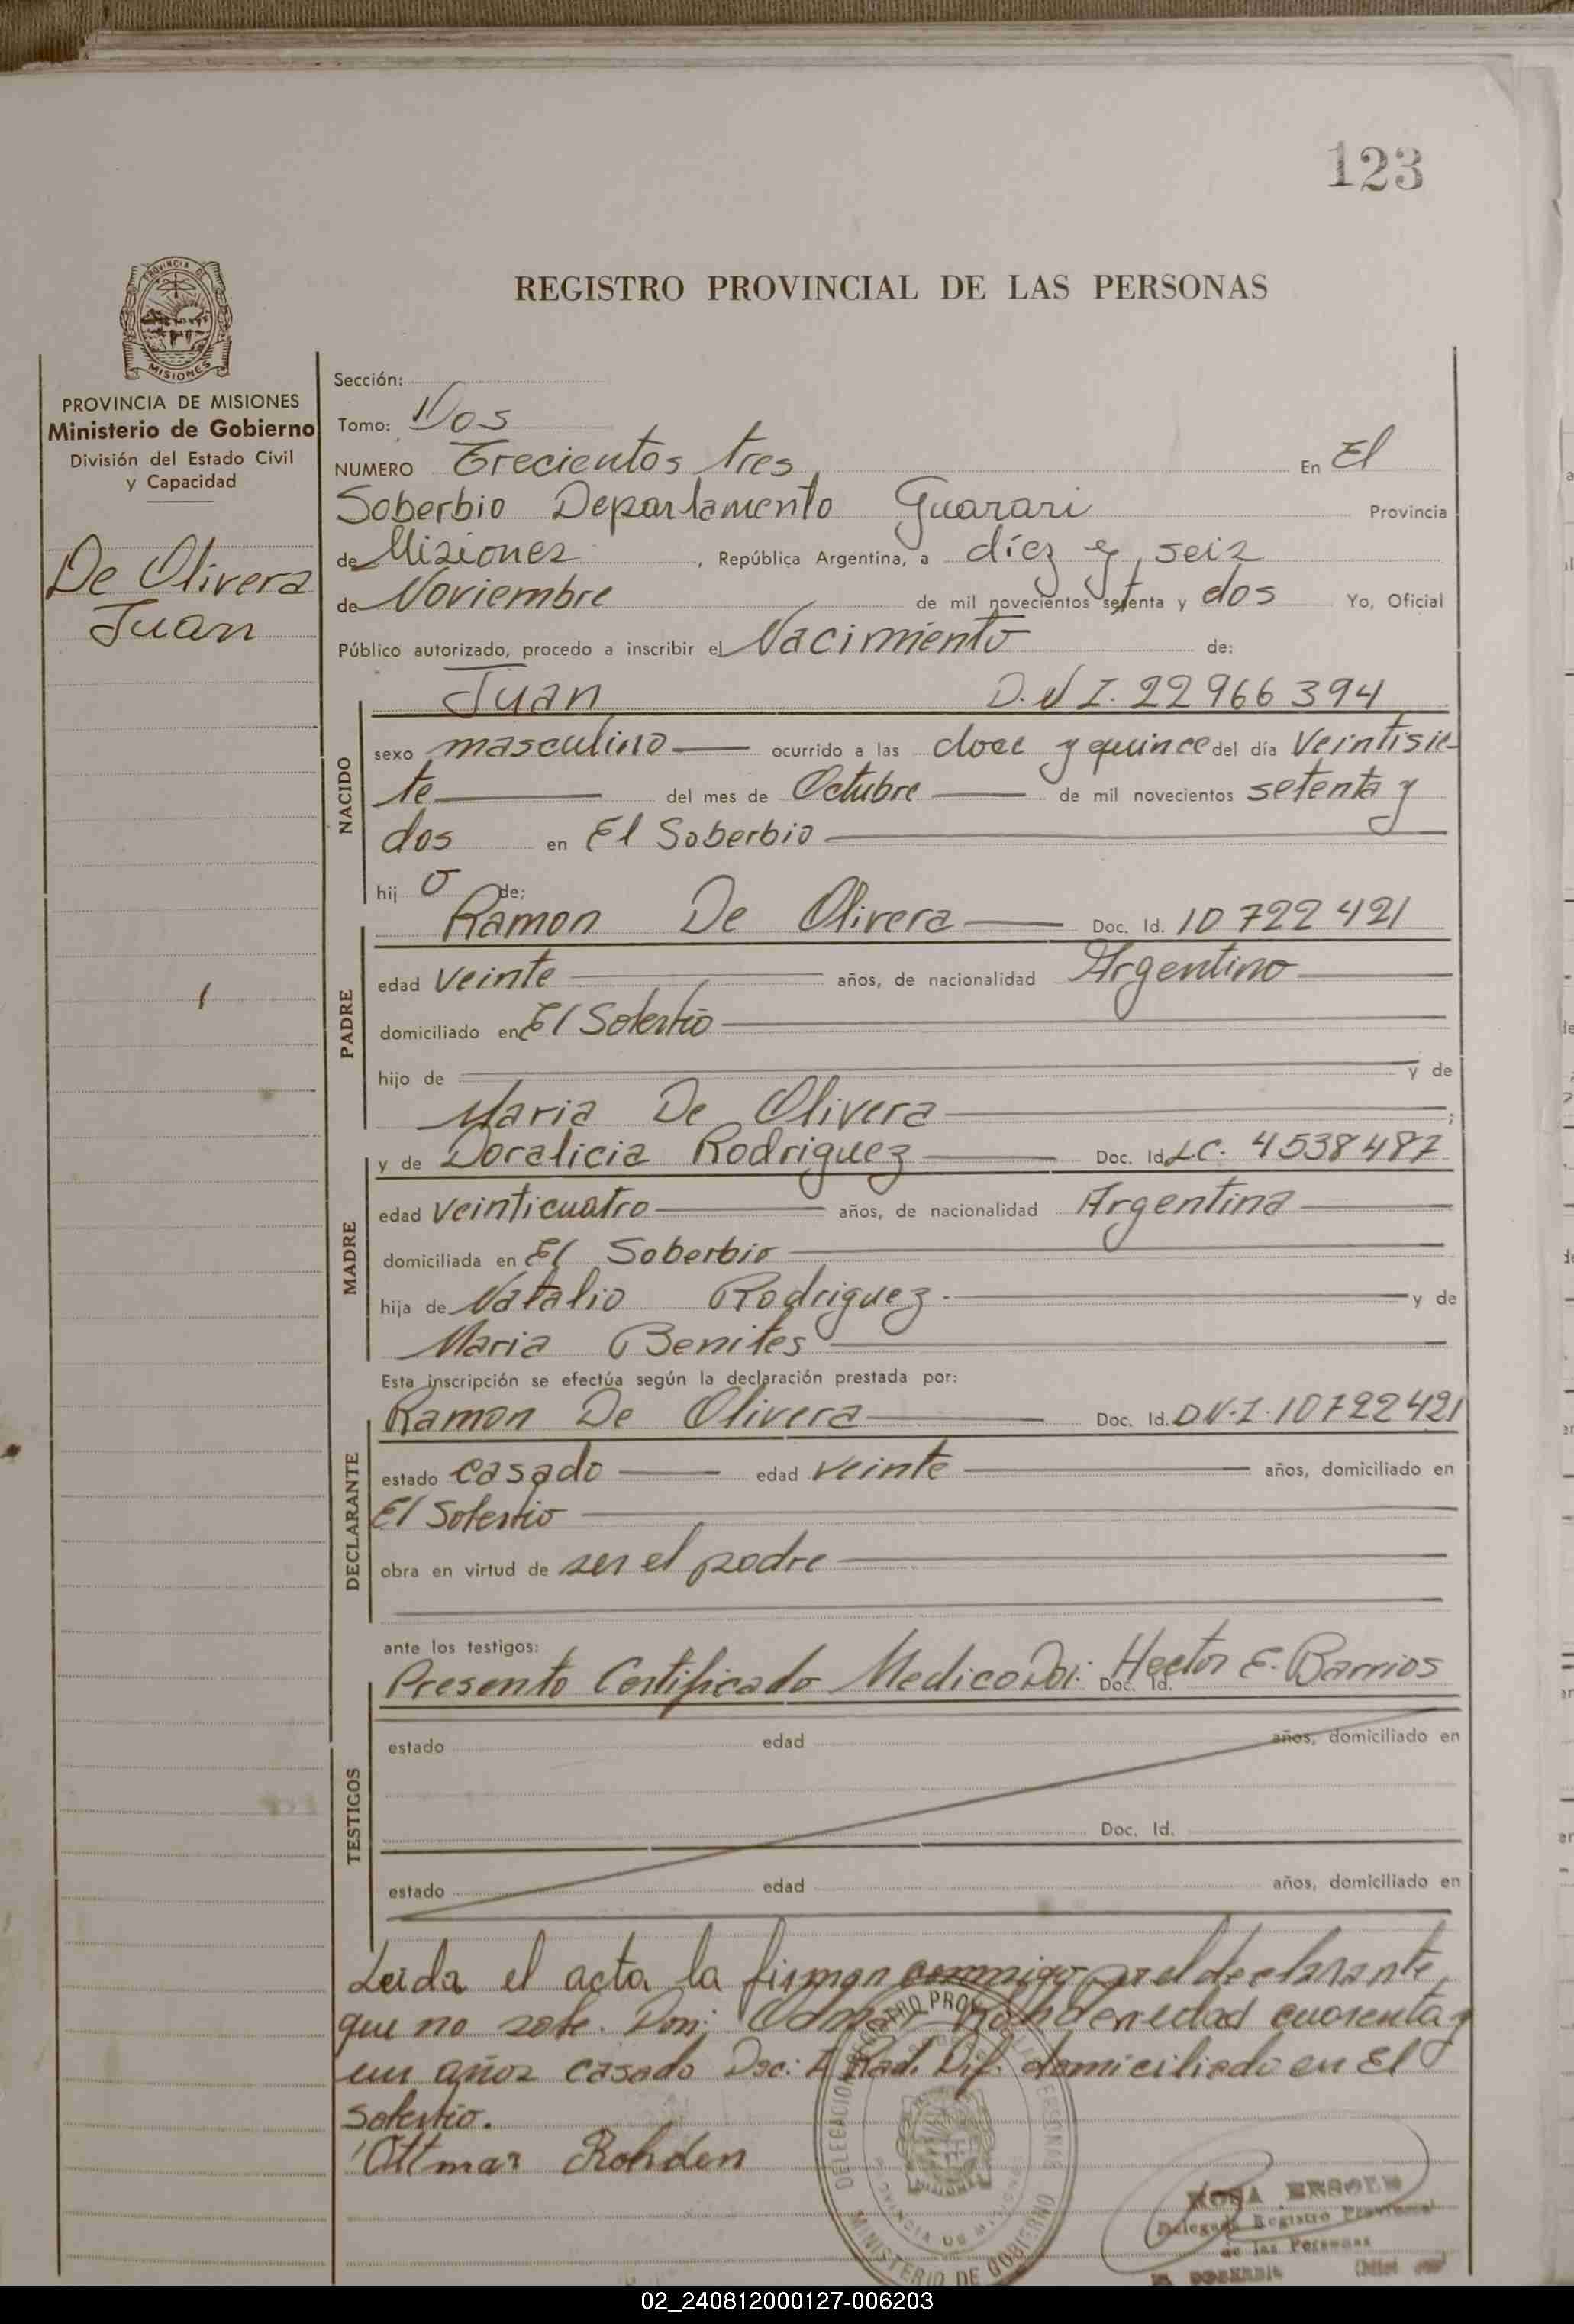 123
PROVINCIA DE
MISIONES
REGISTRO PROVINCIAL DE LAS PERSONAS
PROVINCIA DE MISIONES
Ministerio de Gobierno
División del Estado Civil
y Capacidad
De Olivera
Juan
Sección:
Tomo: Dos
NUMERO Trecientos tres En El
Soberbio Departamento Guarari Provincia
de Misiones, República Argentina, a diez y seis
de Noviembre de mil novecientos setenta y dos Yo, Oficial
Público autorizado, procedo a inscribir el Nacimiento de:
Juan D.N I. 22966394
NACIDO
sexo masculino ocurrido a las doce y quince del día Veintisie-
te del mes de Octubre de mil novecientos setenta y
dos en El Soberbio
hij o de:
Ramon De Olivera Doc. Id. 10 722 421
PADRE
edad veinte años, de nacionalidad Argentino
domiciliado en El Soberbio
hijo de y de
Maria De Olivera ;
y de Doralicia Rodriguez Doc. Id. L.C. 4538487
MADRE
edad veinticuatro años, de nacionalidad Argentina
domiciliada en El Soberbio
hija de Natalio Rodriguez. y de
Maria Benites
Esta inscripción se efectúa según la declaración prestada por:
Ramon De Olivera Doc. Id. D.N.I. 10722421
DECLARANTE
estado casado edad veinte años, domiciliado en
El Soberbio
obra en virtud de ser el padre
ante los testigos:
Presento Certificado Medico Dor: Doc. Id. Hector E. Barrios
TESTIGOS
estado edad años, domiciliado en
Doc. Id.
estado edad años, domiciliado en
Leida el acta la firman conmigo por el declarante
que no sabe. Don: Rohden edad cuarenta y
un años casado Doc: I Rad. Dif. domiciliado en El
Soberbio.
Ottmar Rohden
DELEGACION REGISTRO PROVINCIAL DE LAS PERSONAS
PROVINCIA DE MISIONES
MINISTERIO DE GOBIERNO
ROSA
Delegada Registro Provincial
de las Personas
02_240812000127-006203